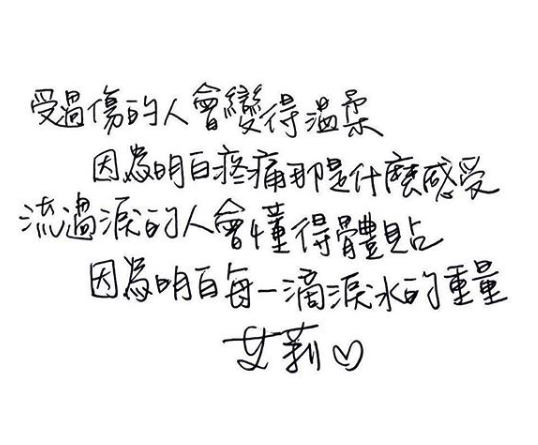 受過傷的人會變得溫柔
因為明白疼痛那是什麼感受
流過淚的人會懂得體貼
因為明白每一滴淚水的重量
艾莉♡